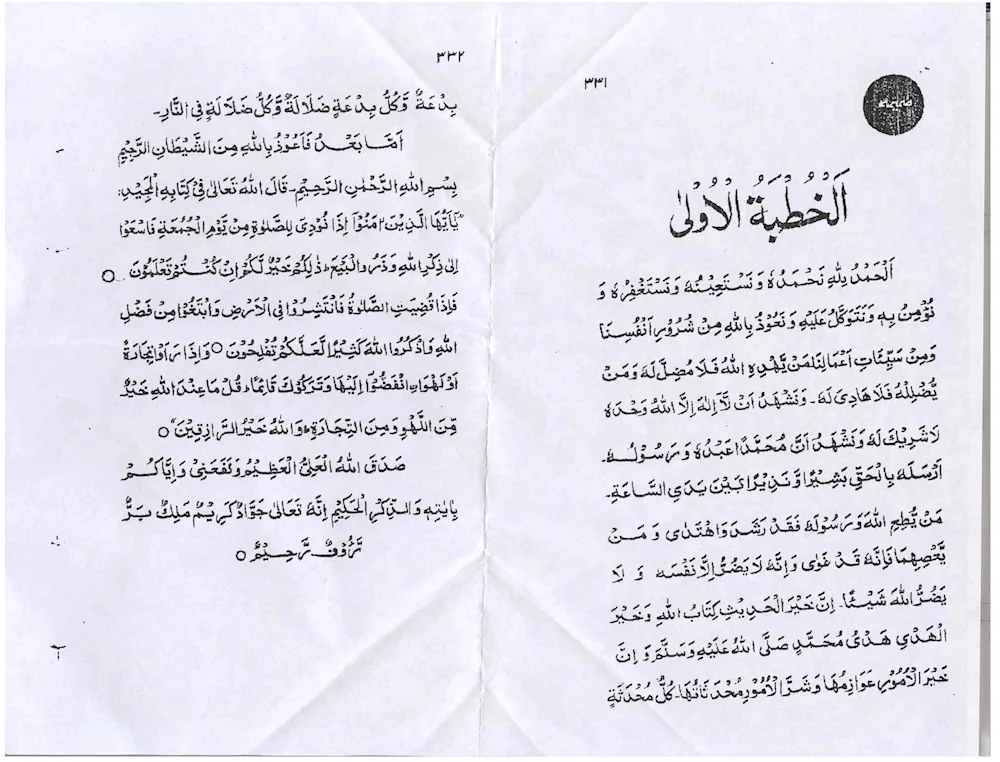 ٣٣١
ضمیمہ
اَلْخُطْبَةُ الْاُوْلٰى
اَلْحَمْدُ لِلّٰهِ نَحْمَدُهٗ وَنَسْتَعِيْنُهٗ وَنَسْتَغْفِرُهٗ وَ
نُؤْمِنُ بِهٖ وَنَتَوَكَّلُ عَلَيْهِ وَنَعُوْذُ بِاللّٰهِ مِنْ شُرُوْرِ اَنْفُسِنَا
وَمِنْ سَيِّئَاتِ اَعْمَالِنَا مَنْ يَّهْدِهِ اللّٰهُ فَلَا مُضِلَّ لَهٗ وَمَنْ
يُّضْلِلْهُ فَلَا هَادِيَ لَهٗ ۔ وَنَشْهَدُ اَنْ لَّآ اِلٰهَ اِلَّا اللّٰهُ وَحْدَهٗ
لَا شَرِيْكَ لَهٗ وَنَشْهَدُ اَنَّ مُحَمَّدًا عَبْدُهٗ وَرَسُوْلُهٗ ۔
اَرْسَلَهٗ بِالْحَقِّ بَشِيْرًا وَّنَذِيْرًا بَيْنَ يَدَيِ السَّاعَةِ ۔
مَنْ يُّطِعِ اللّٰهَ وَرَسُوْلَهٗ فَقَدْ رَشَدَ وَاهْتَدٰى وَمَنْ
يَّعْصِهِمَا فَاِنَّهٗ قَدْ غَوٰى وَاِنَّهٗ لَا يَضُرُّ اِلَّا نَفْسَهٗ وَلَا
يَضُرُّ اللّٰهَ شَيْئًا ۔ اِنَّ خَيْرَ الْحَدِيْثِ كِتَابُ اللّٰهِ وَخَيْرَ
الْهَدْيِ هَدْيُ مُحَمَّدٍ صَلَّى اللّٰهُ عَلَيْهِ وَسَلَّمَ وَاِنَّ
خَيْرَ الْاُمُوْرِ عَوَازِمُهَا وَشَرَّ الْاُمُوْرِ مُحْدَثَاتُهَا ۔ كُلُّ مُحْدَثَةٍ
٣٣٢
بِدْعَةٌ وَّكُلُّ بِدْعَةٍ ضَلَالَةٌ وَّكُلُّ ضَلَالَةٍ فِي النَّارِ ۔
اَمَّا بَعْدُ فَاَعُوْذُ بِاللّٰهِ مِنَ الشَّيْطَانِ الرَّجِيْمِ
بِسْمِ اللّٰهِ الرَّحْمٰنِ الرَّحِيْمِ ۔ قَالَ اللّٰهُ تَعَالٰى فِيْ كِتَابِهِ الْمَجِيْدِ:
يٰٓاَيُّهَا الَّذِيْنَ اٰمَنُوْٓا اِذَا نُوْدِيَ لِلصَّلٰوةِ مِنْ يَّوْمِ الْجُمُعَةِ فَاسْعَوْا
اِلٰى ذِكْرِ اللّٰهِ وَذَرُوا الْبَيْعَ ؕ ذٰلِكُمْ خَيْرٌ لَّكُمْ اِنْ كُنْتُمْ تَعْلَمُوْنَ ○
فَاِذَا قُضِيَتِ الصَّلٰوةُ فَانْتَشِرُوْا فِي الْاَرْضِ وَابْتَغُوْا مِنْ فَضْلِ
اللّٰهِ وَاذْكُرُوا اللّٰهَ كَثِيْرًا لَّعَلَّكُمْ تُفْلِحُوْنَ ○ وَاِذَا رَاَوْا تِجَارَةً
اَوْ لَهْوَا ۨ انْفَضُّوْٓا اِلَيْهَا وَتَرَكُوْكَ قَآئِمًا ؕ قُلْ مَا عِنْدَ اللّٰهِ خَيْرٌ
مِّنَ اللَّهْوِ وَمِنَ التِّجَارَةِ ؕ وَاللّٰهُ خَيْرُ الرَّازِقِيْنَ ○
صَدَقَ اللّٰهُ الْعَلِيُّ الْعَظِيْمُ وَنَفَعَنِيْ وَاِيَّاكُمْ
بِاٰيٰتِهٖ وَالذِّكْرِ الْحَكِيْمِ اِنَّهٗ تَعَالٰى جَوَّادٌ كَرِيْمٌ مَلِكٌ بَرٌّ
رَّءُوْفٌ رَّحِيْمٌ ○